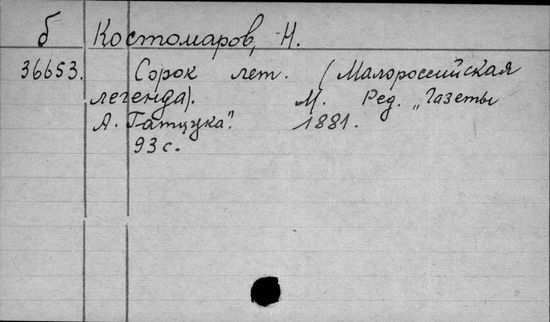 б Костомаров, Н.
36653. Сорок лет. (Малороссийская
легенда). М. Ред. „Газеты
А. Гатцука". 1881.
93 с.